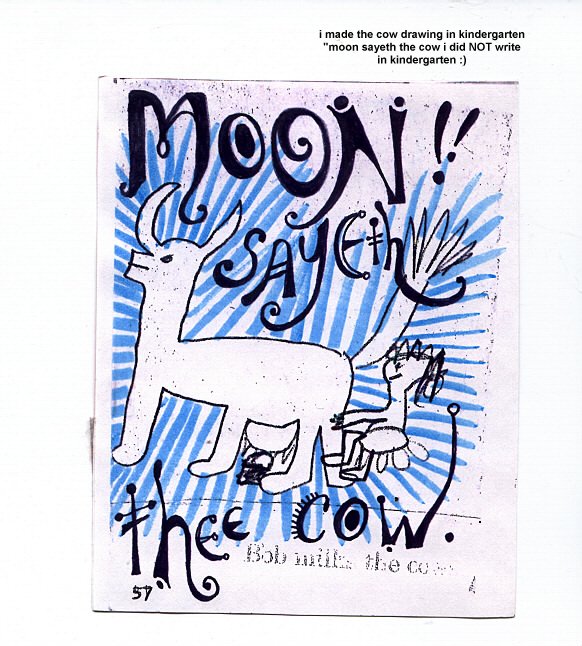 i made the cow drawing in kindergarten
"moon sayeth the cow i did NOT write
in kindergarten :)
MOON!!
SAYEth
thee COW.
Bob milks the cow
57